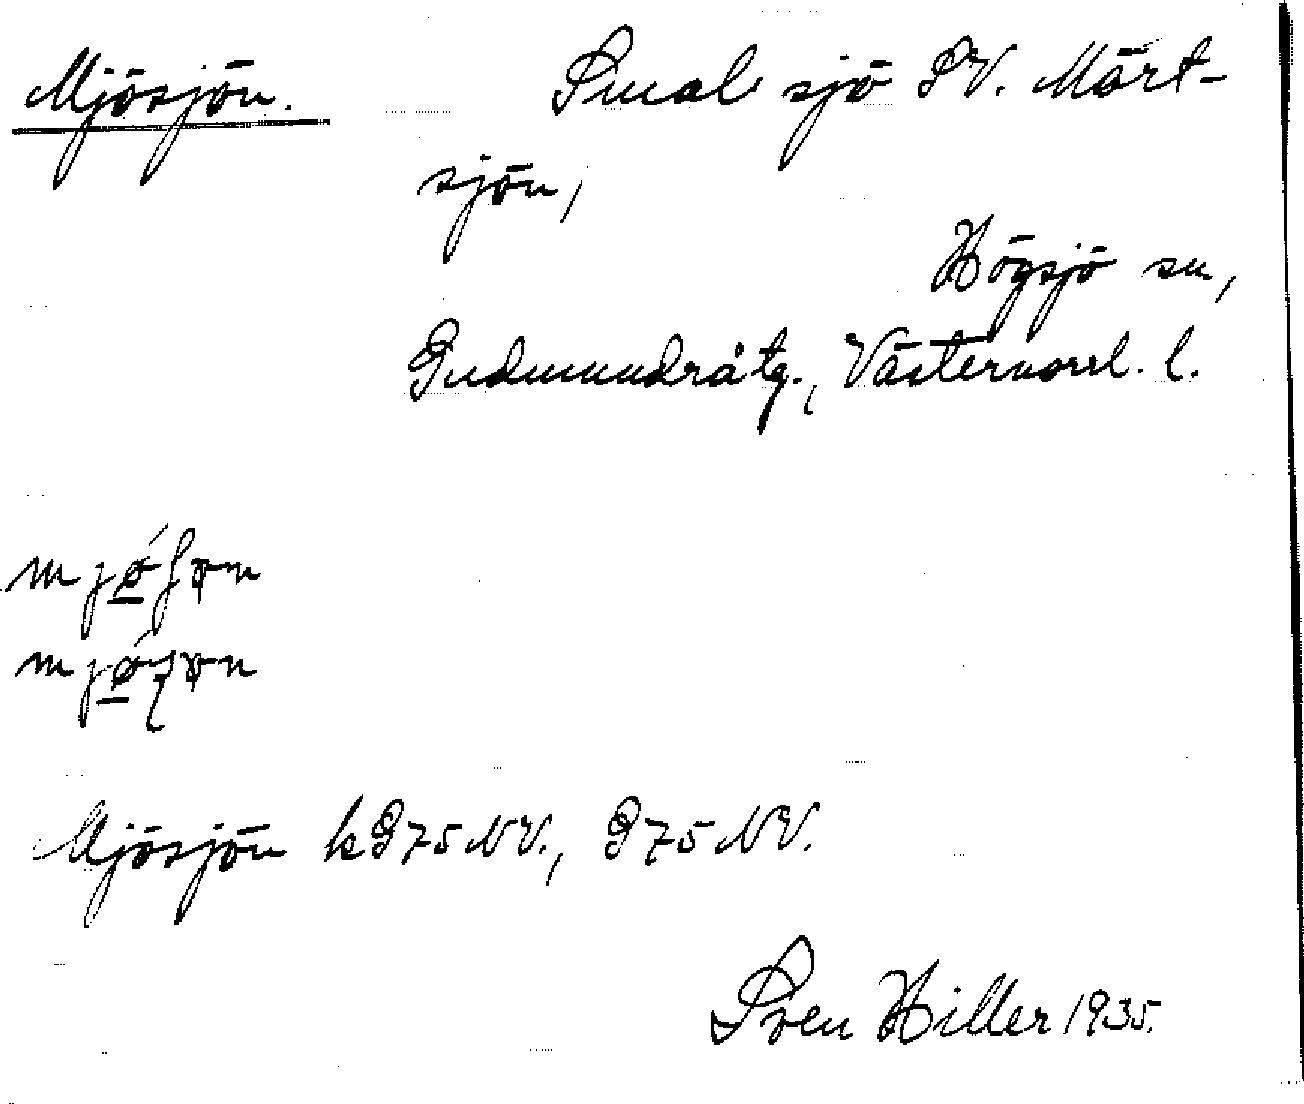 Mjösjön. Smal sjö SV. Märt-
sjön,
Högsjö sn,
Gudmundrå tg., Västernorrl. l.
mjǿʃɵn
Mjösjön kG75NV., G75NV.
Sven Hiller 1935.